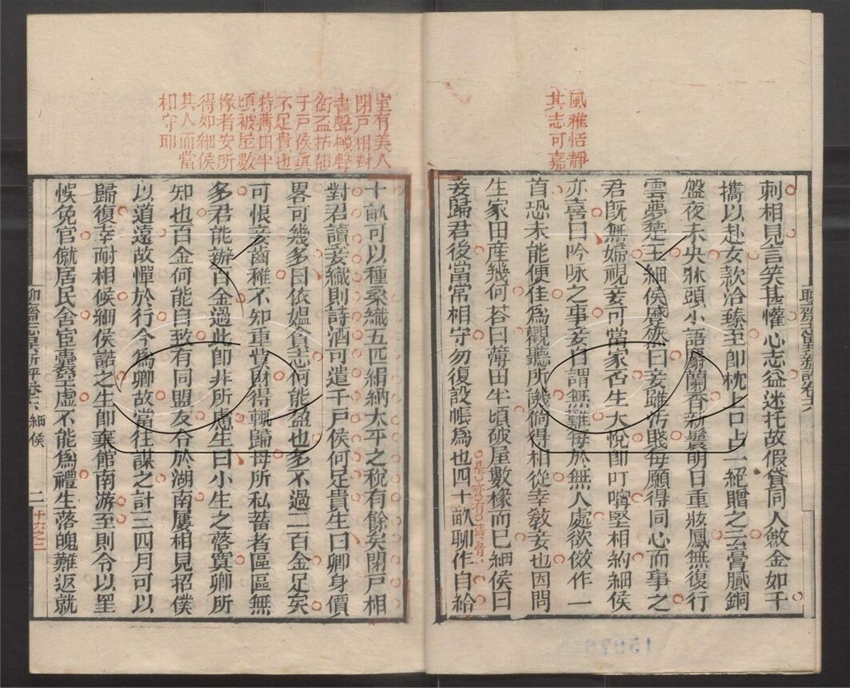 風雅恬靜
其志可嘉
刺相見言笑甚懽心志益迷托故假貸同人斂金如干
攜以赴女款洽臻至卽枕上口占一絕贈之云膏膩銅
盤夜未央牀頭小語麝蘭香新鬟明日重妝鳳無復行
雲夢楚王細侯蹙然曰妾雖汚賤每願得同心而事之
君旣無婦視妾可當家否生大悅卽叮嚀堅相約細侯
亦喜曰吟咏之事妾自謂無難每於無人處欲倣作一
首恐未能便佳爲觀聽所譏倘得相從幸教妾也因問
生家田產幾何荅曰薄田半頃破屋數椽而已細侯曰
妾歸君後當常相守勿復設帳爲也四十畝聊作自給
十畝可以種桑織五匹絹納太平之稅有餘矣閉戶相
對君讀妾織則詩酒可遣千戶侯何足貴生曰卿身價
畧可幾多曰依媼貪志何能盈也多不過二百金足矣
可恨妾齒稚不知重貲財得輒歸母所私蓄者區區無
多君能辦百金過此卽非所慮生曰小生之落寞卿所
知也百金何能自致有同盟友令於湖南屢相見招僕
以道遠故憚於行今爲卿故當往謀之計三四月可以
歸復幸耐相候細侯諾之生卽棄館南游至則令以罣
悞免官僦居民舍宦囊空虛不能爲禮生落魄難返就
室有美人
閉戶相對
書聲機聲
銜盃抵韻
千戶侯眞
不足貴也
特薄田半
頃破屋數
椽者安所
得如細侯
其人而當
相守耶
細侯
二
十六之三